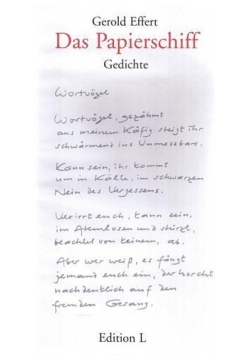 Gerold Effert
Das Papierschiff
Gedichte
Wortvögel
Wortvögel, gezähmt
aus meinem Käfig steigt ihr
schwärmend ins Unmessbare.
Kann sein, ihr kommt
um in Kälte, im schwarzen
Nein des Vergessens.
Verirrt euch, kann sein,
im Atemlosen und stürzt,
beachtet von keinem, ab.
Aber wer weiß, es fängt
jemand euch ein, der horcht
nachdenklich auf den
fremden Gesang.
Edition L